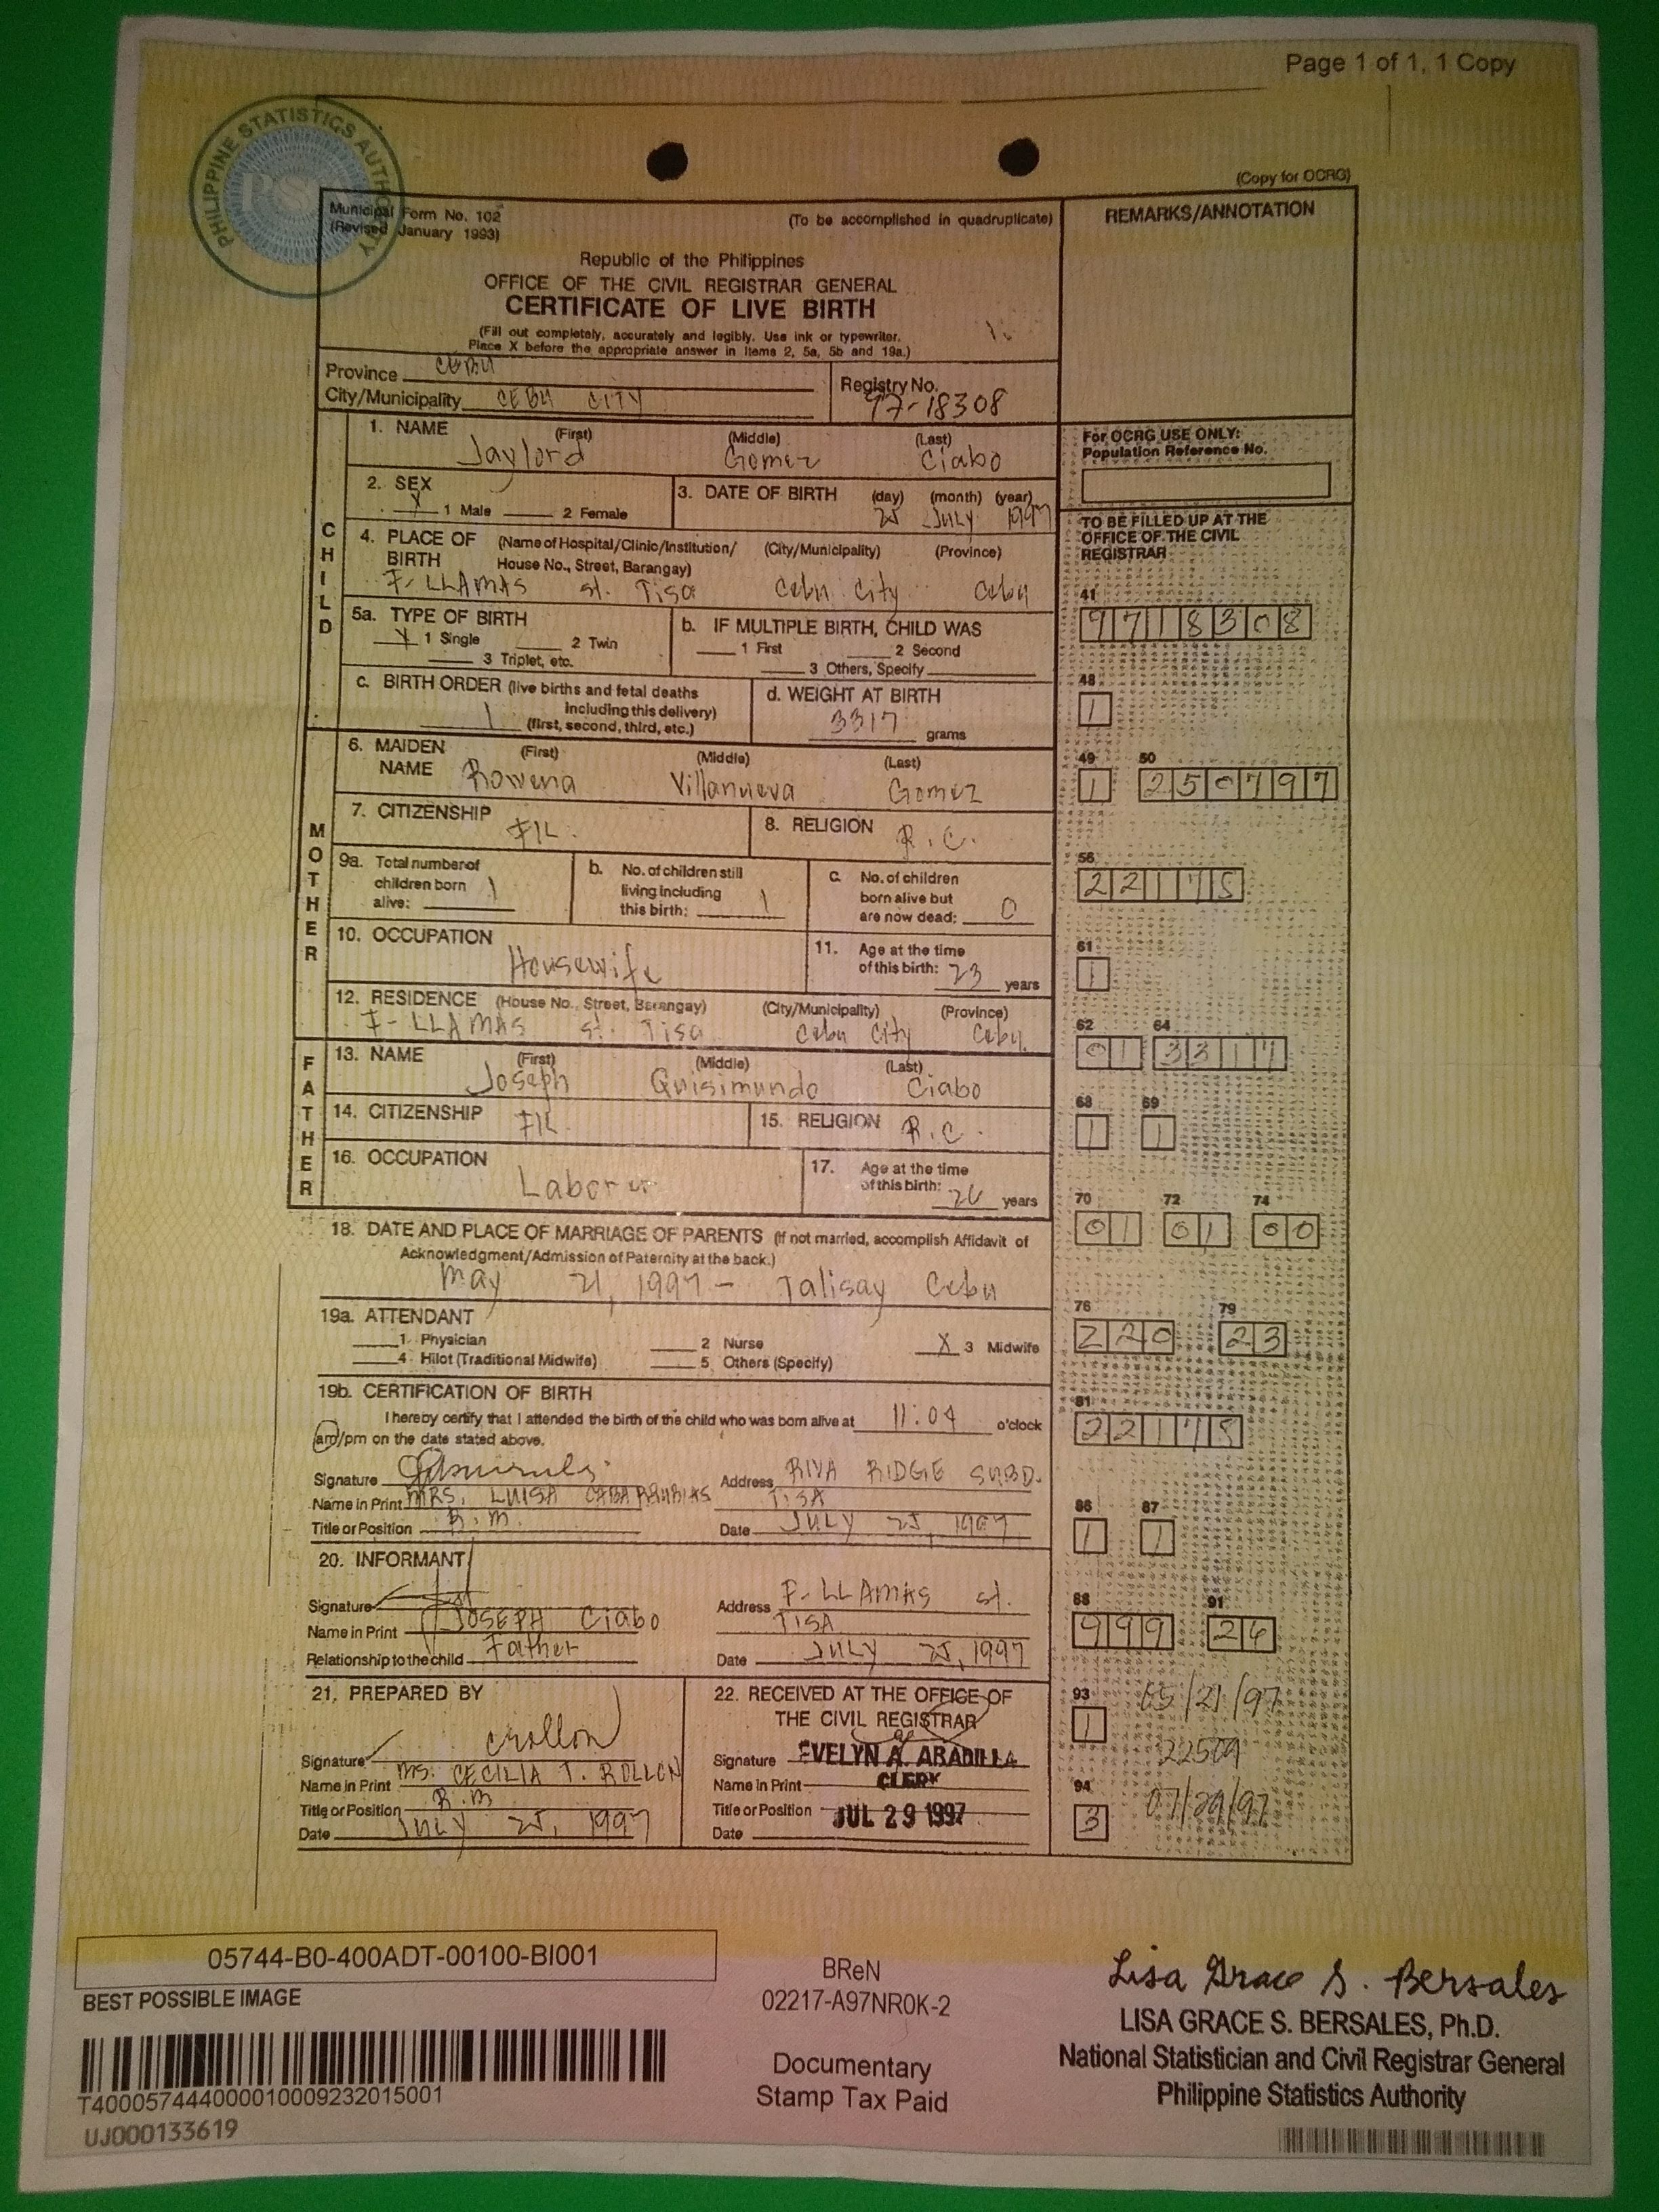 Page 1 of 1, 1 Copy
PHILIPPINE STATISTICS AUTHORITY
PSA
(Copy for OCRG)
Municipal Form No. 102
(Revised January 1993)
(To be accomplished in quadruplicate)
REMARKS/ANNOTATION
Republic of the Philippines
OFFICE OF THE CIVIL REGISTRAR GENERAL
CERTIFICATE OF LIVE BIRTH
(Fill out completely, accurately and legibly. Use ink or typewriter.
Place X before the appropriate answer in Items 2, 5a, 5b and 19a.)
Province CEBU
City/Municipality CEBU CITY
Registry No. 97-18308
CHILD
1. NAME (First) (Middle) (Last)
Jaylord Gomez Ciabo
For OCRG USE ONLY:
Population Reference No.
2. SEX
X 1 Male 2 Female
3. DATE OF BIRTH (day) (month) (year)
25 JULY 1997
TO BE FILLED UP AT THE
OFFICE OF THE CIVIL
REGISTRAR
4. PLACE OF BIRTH (Name of Hospital/Clinic/Institution/ House No., Street, Barangay) (City/Municipality) (Province)
F- LLAMAS st. Tisa Cebu City Cebu
41
9718308
5a. TYPE OF BIRTH
X 1 Single 2 Twin
3 Triplet, etc.
b. IF MULTIPLE BIRTH, CHILD WAS
1 First 2 Second
3 Others, Specify
c. BIRTH ORDER (live births and fetal deaths
including this delivery)
1 (first, second, third, etc.)
d. WEIGHT AT BIRTH
3317 grams
48
1
MOTHER
6. MAIDEN NAME (First) (Middle) (Last)
Rowena Villanueva Gomez
49 50
1 250797
7. CITIZENSHIP FIL.
8. RELIGION R.C.
9a. Total number of
children born
alive: 1
b. No. of children still
living including
this birth: 1
c. No. of children
born alive but
are now dead: 0
56
22175
10. OCCUPATION
Housewife
11. Age at the time
of this birth: 23 years
61
1
12. RESIDENCE (House No., Street, Barangay) (City/Municipality) (Province)
F- LLAMAS st. Tisa Cebu City Cebu.
62 64
01 3317
FATHER
13. NAME (First) (Middle) (Last)
Joseph Quisimundo Ciabo
14. CITIZENSHIP FIL
15. RELIGION R.C.
68 69
1 1
16. OCCUPATION
Laborer
17. Age at the time
of this birth: 26 years
70 72 74
01 01 00
18. DATE AND PLACE OF MARRIAGE OF PARENTS (If not married, accomplish Affidavit of
Acknowledgment/Admission of Paternity at the back.)
May 21, 1997 - Talisay Cebu
76 79
220 23
19a. ATTENDANT
1 Physician 2 Nurse X 3 Midwife
4 Hilot (Traditional Midwife) 5 Others (Specify)
19b. CERTIFICATION OF BIRTH
I hereby certify that I attended the birth of the child who was born alive at 11:04 o'clock
am/pm on the date stated above.
81
22175
Signature
Address RIVA RIDGE SUBD.
Name in Print MRS. LUISA CABARRUBIAS
TISA
Title or Position R.M.
Date JULY 25, 1997
86 87
1 1
20. INFORMANT
Signature
Address F- LLAMAS st.
Name in Print JOSEPH Ciabo
TISA
Relationship to the child Father
Date JULY 25, 1997
88 91
999 26
21. PREPARED BY
Signature crollon
Name in Print MS. CECILIA T. ROLLON
Title or Position R.M
Date JULY 25, 1997
22. RECEIVED AT THE OFFICE OF
THE CIVIL REGISTRAR
Signature EVELYN A. ARADILLA
Name in Print CLERK
Title or Position JUL 29 1997
Date
93 05/21/97
1
22509
94 07/29/97
3
05744-B0-400ADT-00100-BI001
BEST POSSIBLE IMAGE
T400057444000010009232015001
UJ000133619
BReN
02217-A97NR0K-2
Documentary
Stamp Tax Paid
Lisa Grace S. Bersales
LISA GRACE S. BERSALES, Ph.D.
National Statistician and Civil Registrar General
Philippine Statistics Authority